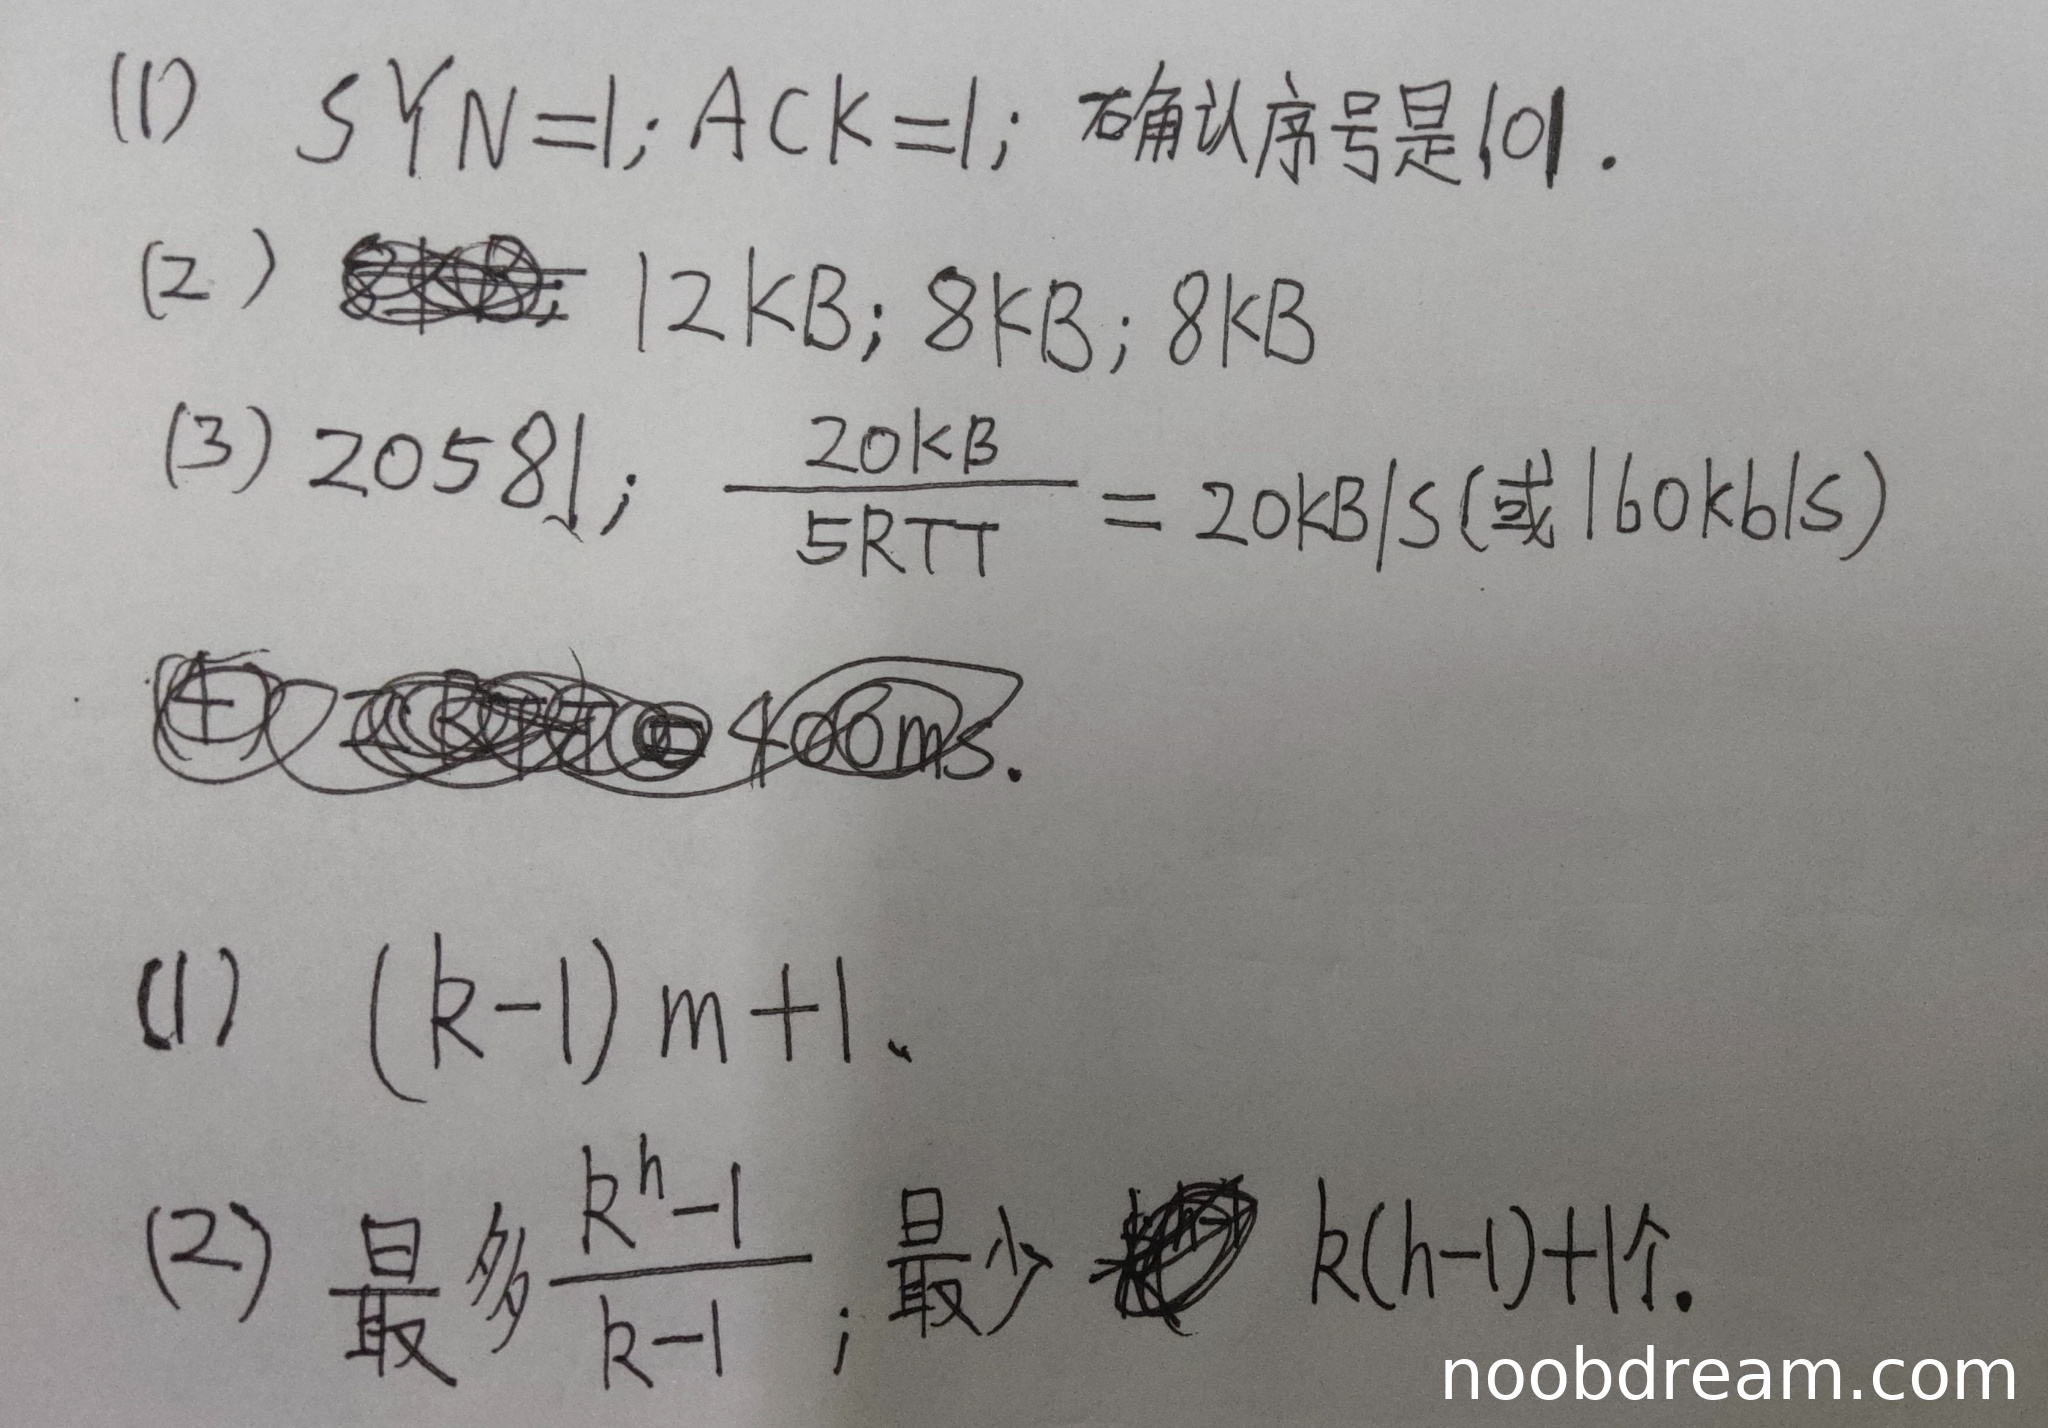 (1) SYN=1; ACK=1; 确认序号是101.
(2) 12KB; 8KB; 8KB
(3) 20581; 20KB/5RTT = 20KB/S (或160kb/s)
400ms.
(1) (k-1)m+1.
(2) 最多 k^h-1/k-1; 最少 k(h-1)+1个.
noobdream.com